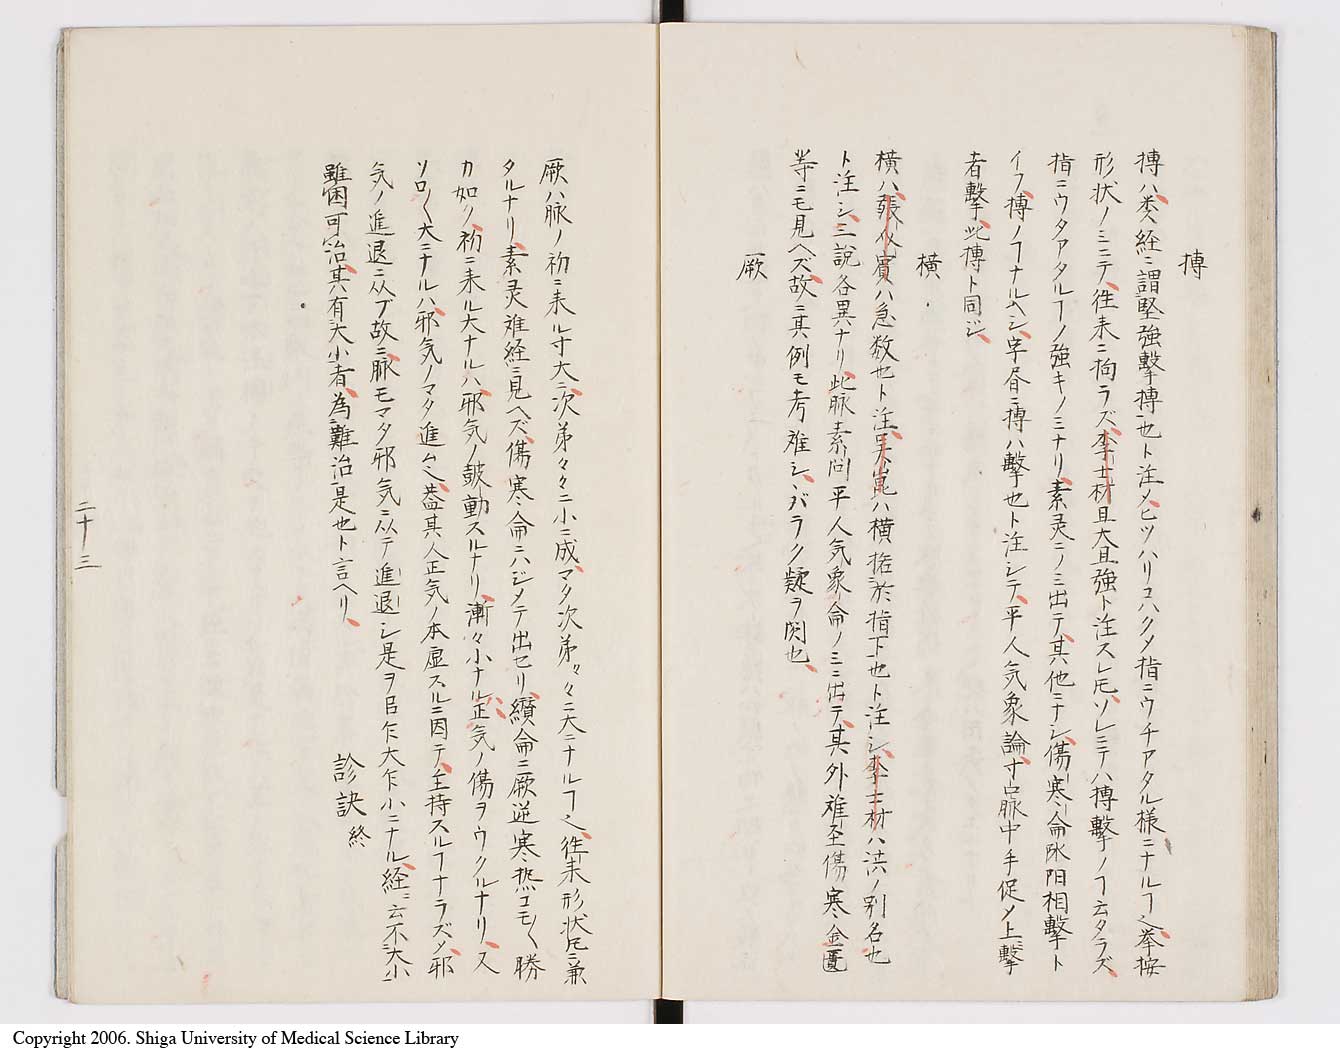 搏
搏ハ類経ニ謂堅強撃搏也ト注メヒツハリコハクメ指ニウチアタル様ニナルヿ也挙按
形状ノミニテ徃来ニ拘ラズ李士材且大且強ト注スレ𪜈ソレニテハ搏撃ノヿ云タラズ
指ニウタアタルヿノ強キノミナリ素灵ニノミ出テ其他ニナシ傷寒論脉陰陽相撃ト
イフ搏ノヿナルヘシ字昏ニ搏ハ撃也ト注シテ平人気象論寸口脈中手促メ上撃
者撃此搏ト同ジ
横
横ハ張介賓ハ急数也ト注呉崑ハ横挌於指下也ト注シ李士材ハ洪ノ別名也
ト注シ三説各異ナリ此脈素問平人気象論ノミニ出テ其外難至傷寒金匱
等ニモ見ヘズ故ニ其例モ考難シシバラク疑ヲ闕也
厥
厥ハ脉ノ初ニ来ル寸大ニ次第々々ニ小ニ成マタ次第々々ニ大ニナルヿ也徃来形状𪜈ニ兼
タルナリ素灵難経ニ見ヘズ傷寒論ニハジメテ出セリ纉論ニ厥逆寒熱コモ〱勝
カ如ク初ニ来ル大ナルハ邪気ノ鼓動スルナリ漸々小ナル正気ノ傷ヲウクルナリ又
ソロ〱大ニナルハ邪気ノマタ進ム也蓋其人正気ノ本虚スルニ因テ主持スルヿナラズメ邪
気ノ進退ニ从フ故ニ脈モマタ邪気ニ从テ進退シ是ヲ㠯乍大乍小ニナル経ニ云不大小
雖困可治其有大小者為難治是也ト言ヘリ
診訣 終
二十三
Copyright 2006. Shiga University of Medical Science Library